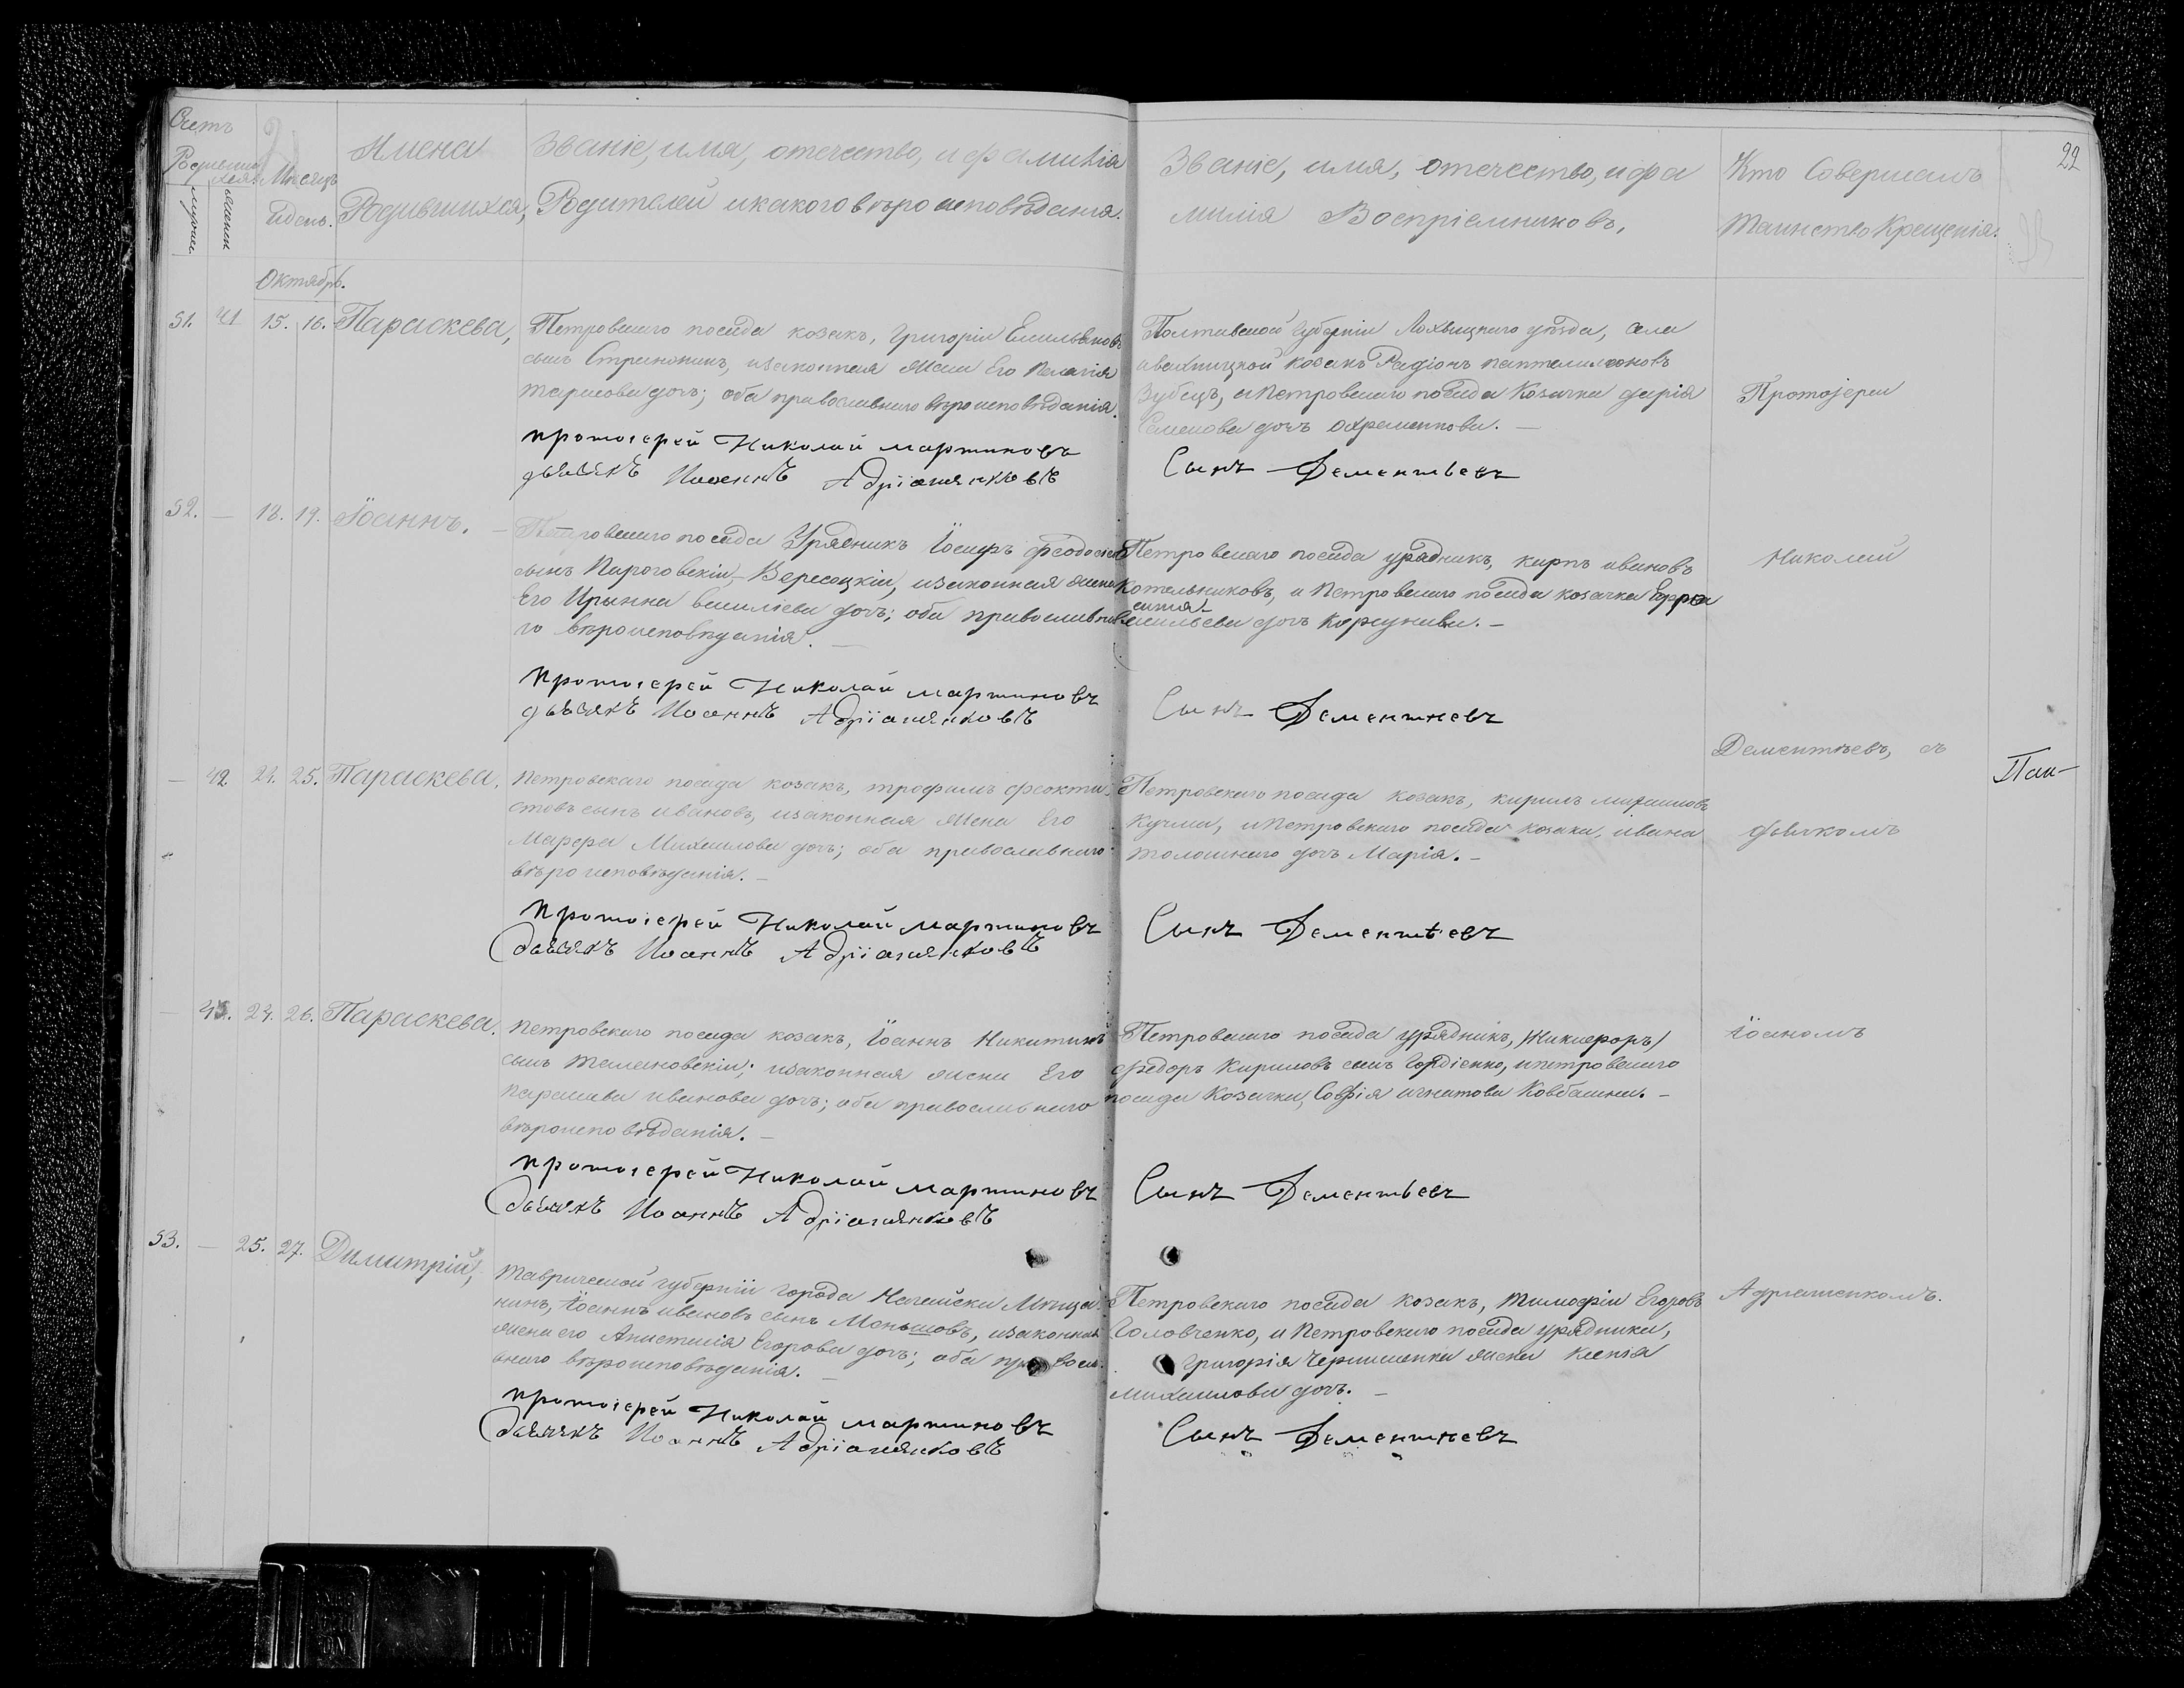 Счетъ
Родившихся.
мужеск
женск
Месяцъ
и день.
Имена
Родившихся,
Званіе, имя, отечество, и фамилія
Родителей и какого вѣроисповѣданія.
Званіе, имя, отечество, и фа
милія Воспріемниковъ,
Кто Совершалъ
Таинство Крещенія.
22
Октябрь.
51. 41 15. 16. Параскева,
Петровскаго посада козакъ, Григорій Емильяновъ
сынъ Стринжикъ, изаконная жена Его Пелагія
Тарасова дочь; оба православнаго вѣроисповѣданія.
протоіерей Николай мартиновъ
дьячекъ Иоаннъ Адріаненковъ
Полтавской Губерніи Лохвицкаго уѣзда, села
козакъ Радіонъ пантелимоновъ
Зубецъ, и Петровскаго посада Козачка дарія
Семенова дочь Охрименкова. —
Сынъ Дементьевъ
Протоіереи
52. — 18. 19. Іоаннъ. —
Петровскаго посада Урядникъ Іосифъ феодосіевъ
сынъ Пироговскій-Вересоцкій, изаконная жена
Его Ирынна василіева дочь; оба православна
го вѣроисповѣданія. —
протоіерей Николай мартиновъ
дьячекъ Иоаннъ Адріаненковъ
Петровскаго посада урядникъ, кирпъ ивановъ
Котельниковъ, и Петровскаго посада козачка Ефро
синія
Василіева дочь Коржунива. —
Сынъ Дементиевъ
Николай
— 42 24. 25. Параскева.
Петровскаго посада козакъ, трофимъ феокти
стовъ сынъ ивановъ, изаконная жена Его
Марфа Михаилова дочь; оба православнаго
вѣроисповѣданія. —
протоіерей Николай мартиновъ
дьячекъ Иоаннъ Адріаненковъ
Петровскаго посада козакъ, кирилъ михаиловъ
Кучма, и Петровскаго посада козака, ивана
толошнаго дочь Марія. —
Сынъ Дементьевъ
Дементѣевъ, съ
дьякомъ
Пан-
— 43. 24. 26. Параскева.
Петровскаго посада козакъ, Іоаннъ Никитинъ
сынъ Темановскій; изаконная жена Его
Парасева иванова дочь; оба православнаго
вѣроисповѣданія. —
протоіерей Николай мартиновъ
дьячекъ Иоаннъ Адріаненковъ
Петровскаго посада урядникъ, /Никифоръ/
федоръ Кириловъ сынъ Гордіенко, и петровскаго
посада Козачка, Софія игнатова Ковбашна. —
Сынъ Дементьевъ
Іоаномъ
53. — 25. 27. Димитрій,
Таврической губерніи города Нагайска Мѣща
нинъ, Іоаннъ ивановъ сынъ Моньшовъ, изаконная
жена его Анистасія Егорова дочь; оба правосла
внаго вѣроисповѣданія. —
протоіерей Николай мартиновъ
дьячекъ Иоаннъ Адріаненковъ
Петровскаго посада козакъ, Тимофій Егоровъ
Головченко, и Петровскаго посада урядника,
Григорія Чернишенка жена Ксенія
михаилова дочь. —
Сынъ Дементиевъ
Адріаненкомъ.